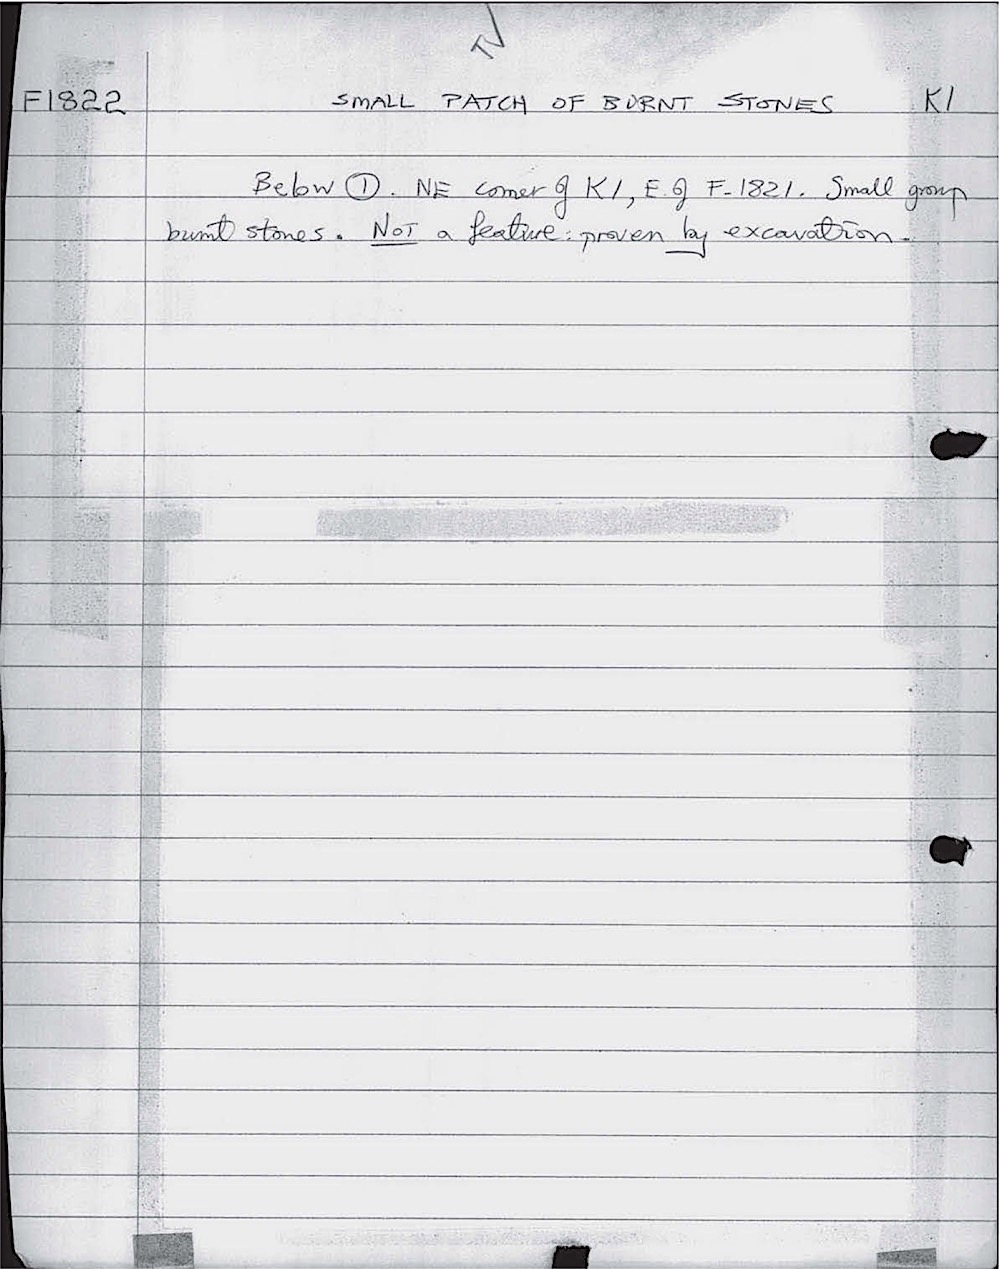 F1822 SMALL PATCH OF BURNT STONES K1
Below ①. NE corner of K1, E. of F. 1821. Small group
burnt stones. NOT a feature: proven by excavation.